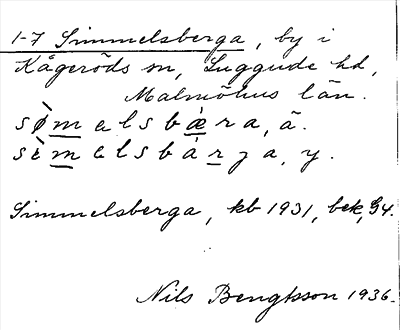 1-7 Simmelsberga, by i
Kågeröds sn, Luggude hd,
Malmöhus län.
sø̀melsbæ̀ra, ä.
sìmelsbàrga, y.
Simmelsberga, kb 1931, bek, G4.
Nils Bengtsson 1936.